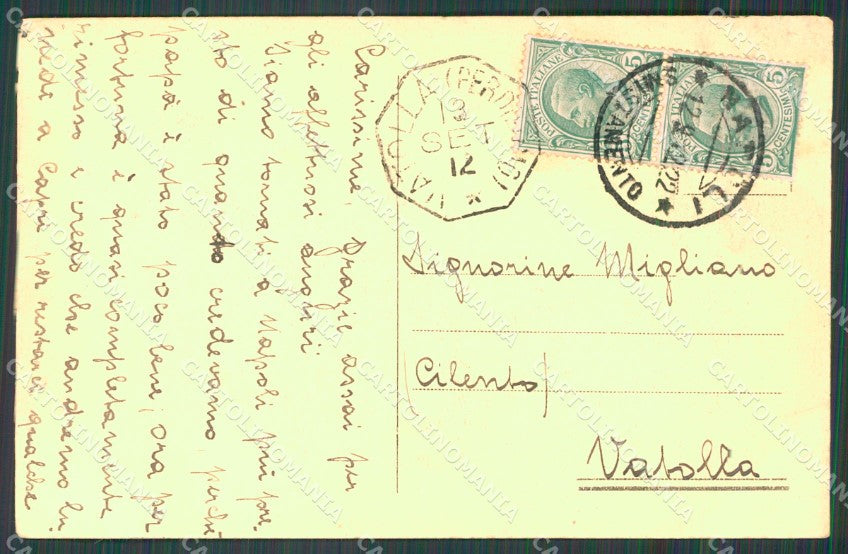 Carissime, Grazie assai per
gli affettuosi auguri
Siamo tornati a Napoli più pre-
sto di quando credevamo, perché
papà è stato poco bene; ora per
fortuna è quasi completamente
rimesso e credo che andremo lu-
nedì a Capri per restarci qualche
VATOLLA (PERD
19
SET
12
POSTE ITALIANE
CENTESIMI 5
POSTE ITALIANE
CENTESIMI 5
NAPOLI
SMISTAMENTO
Signorine Migliano
Cilento
Vatolla
CARTOLINOMANIA